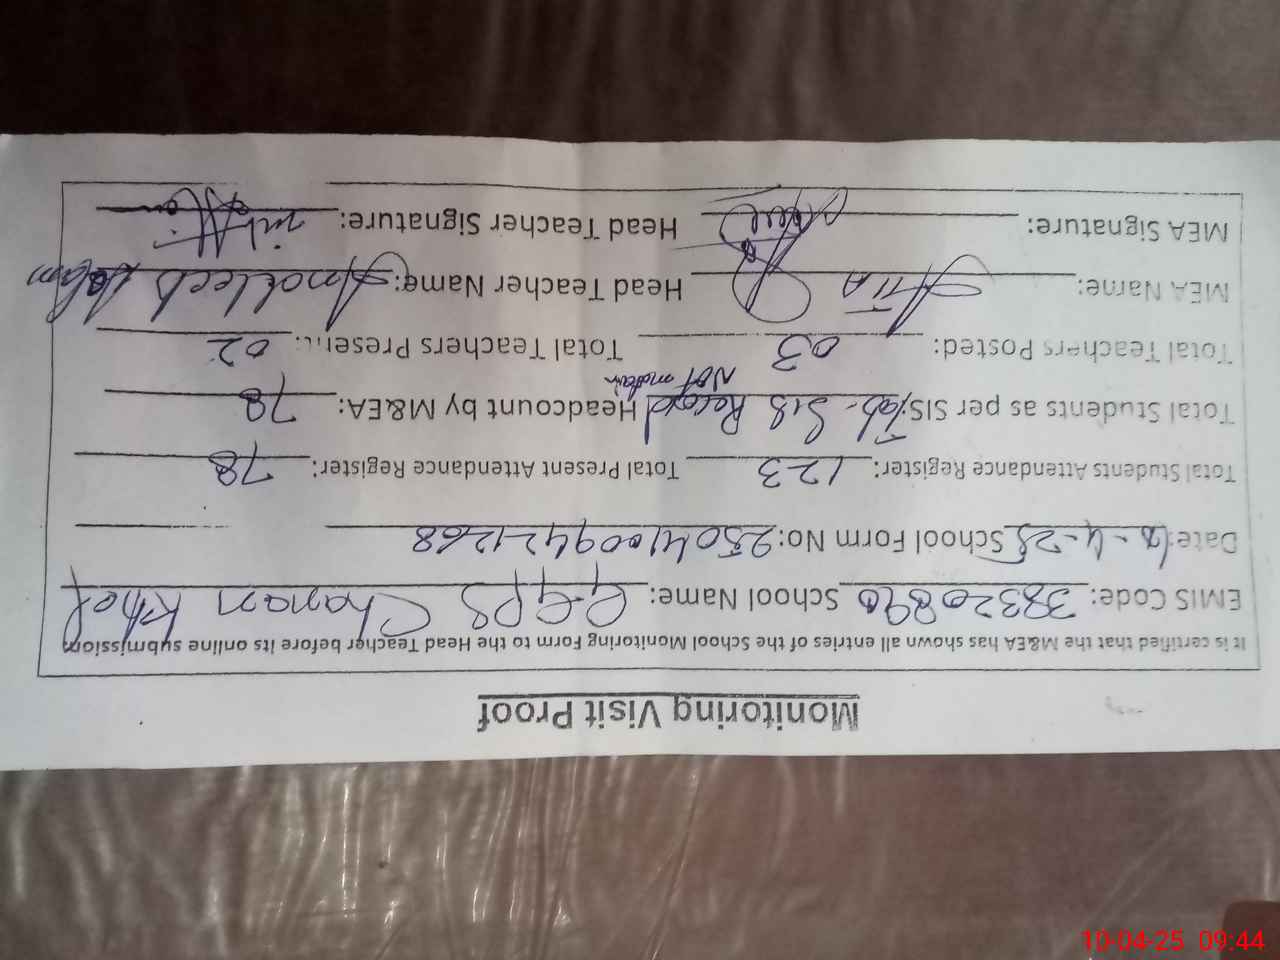 Monitoring Visit Proof
It is certified that the M&EA has shown all entries of the School Monitoring Form to the Head Teacher before its online submission
EMIS Code: 38320890 School Name: GGPS Chanan Khel
Date: 10-4-25 School Form No: 25041009421268
Total Students Attendance Register: 123 Total Present Attendance Register: 78
Total Students as per SIS: Tab- SIS Record NOT Headcount by M&EA: 78
Total Teachers Posted: 03 Total Teachers Present: 02
MEA Name: Head Teacher Name:
MEA Signature: Head Teacher Signature:
10-04-25 09:44